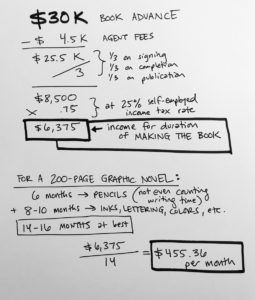 $30K BOOK ADVANCE
- $ 4.5K AGENT FEES
$25.5K } 1/3 on signing
/ 3 1/3 on completion
1/3 on publication
$8,500
x .75 } at 25% self-employed income tax rate
$6,375 ← income for duration of MAKING THE BOOK
FOR A 200-PAGE GRAPHIC NOVEL:
6 months → PENCILS (not even counting writing time)
+ 8-10 months → INKS, LETTERING, COLORS, etc.
14-16 MONTHS at best
$6,375 / 14 = $455.36 per month